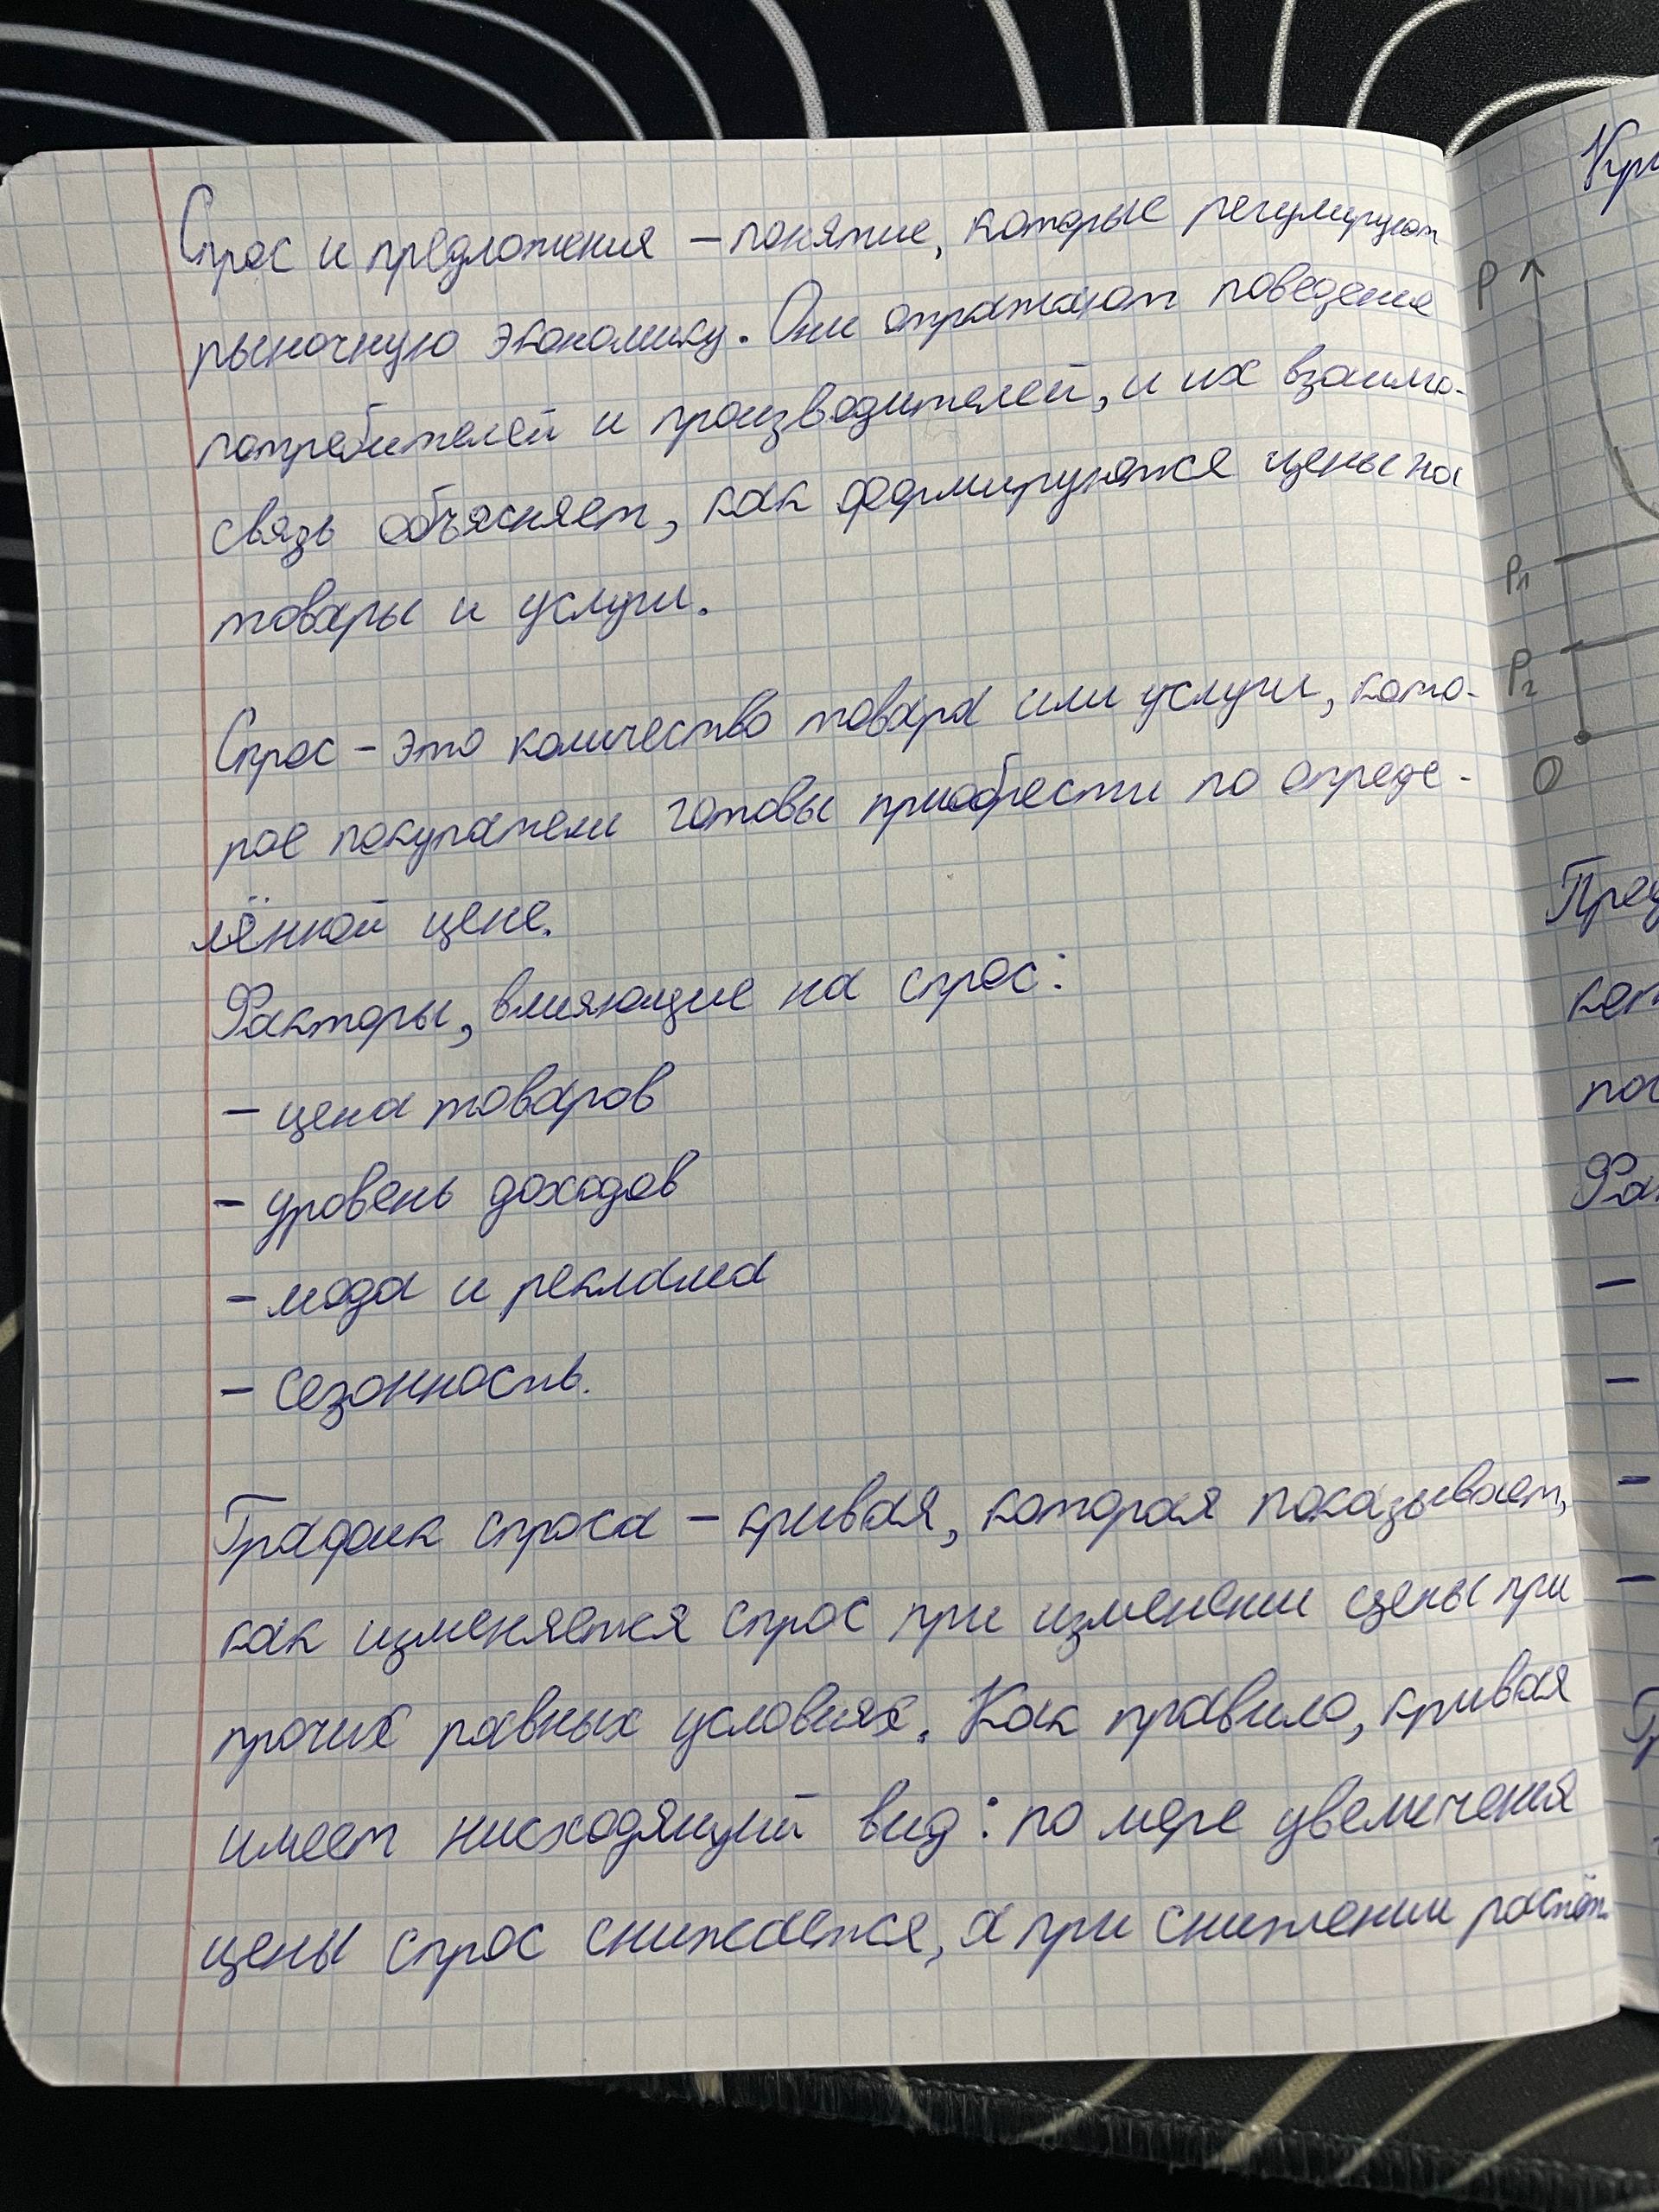 Спрос и предложения – понятие, которые регулируют
рыночную экономику. Они отражают поведение
потребителей и производителей, и их взаимо-
связь объясняет, как формируются цены на
товары и услуги.
Спрос – это количество товара или услуги, кото-
рое покупатели готовы приобрести по опреде-
лённой цене.
Факторы, влияющие на спрос:
– цена товаров
– уровень доходов
– мода и реклама
– сезонность.
График спроса – кривая, которая показывает,
как изменяется спрос при изменении цены при
прочих равных условиях. Как правило, кривая
имеет нисходящий вид: по мере увеличения
цены спрос снижается, а при снижении растёт.
P
P1
P2
0